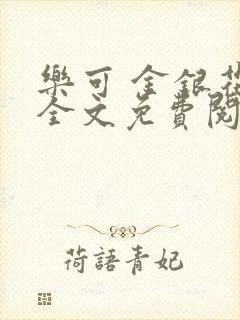 樂可 金銀花
全文免費閱
荷語青妃